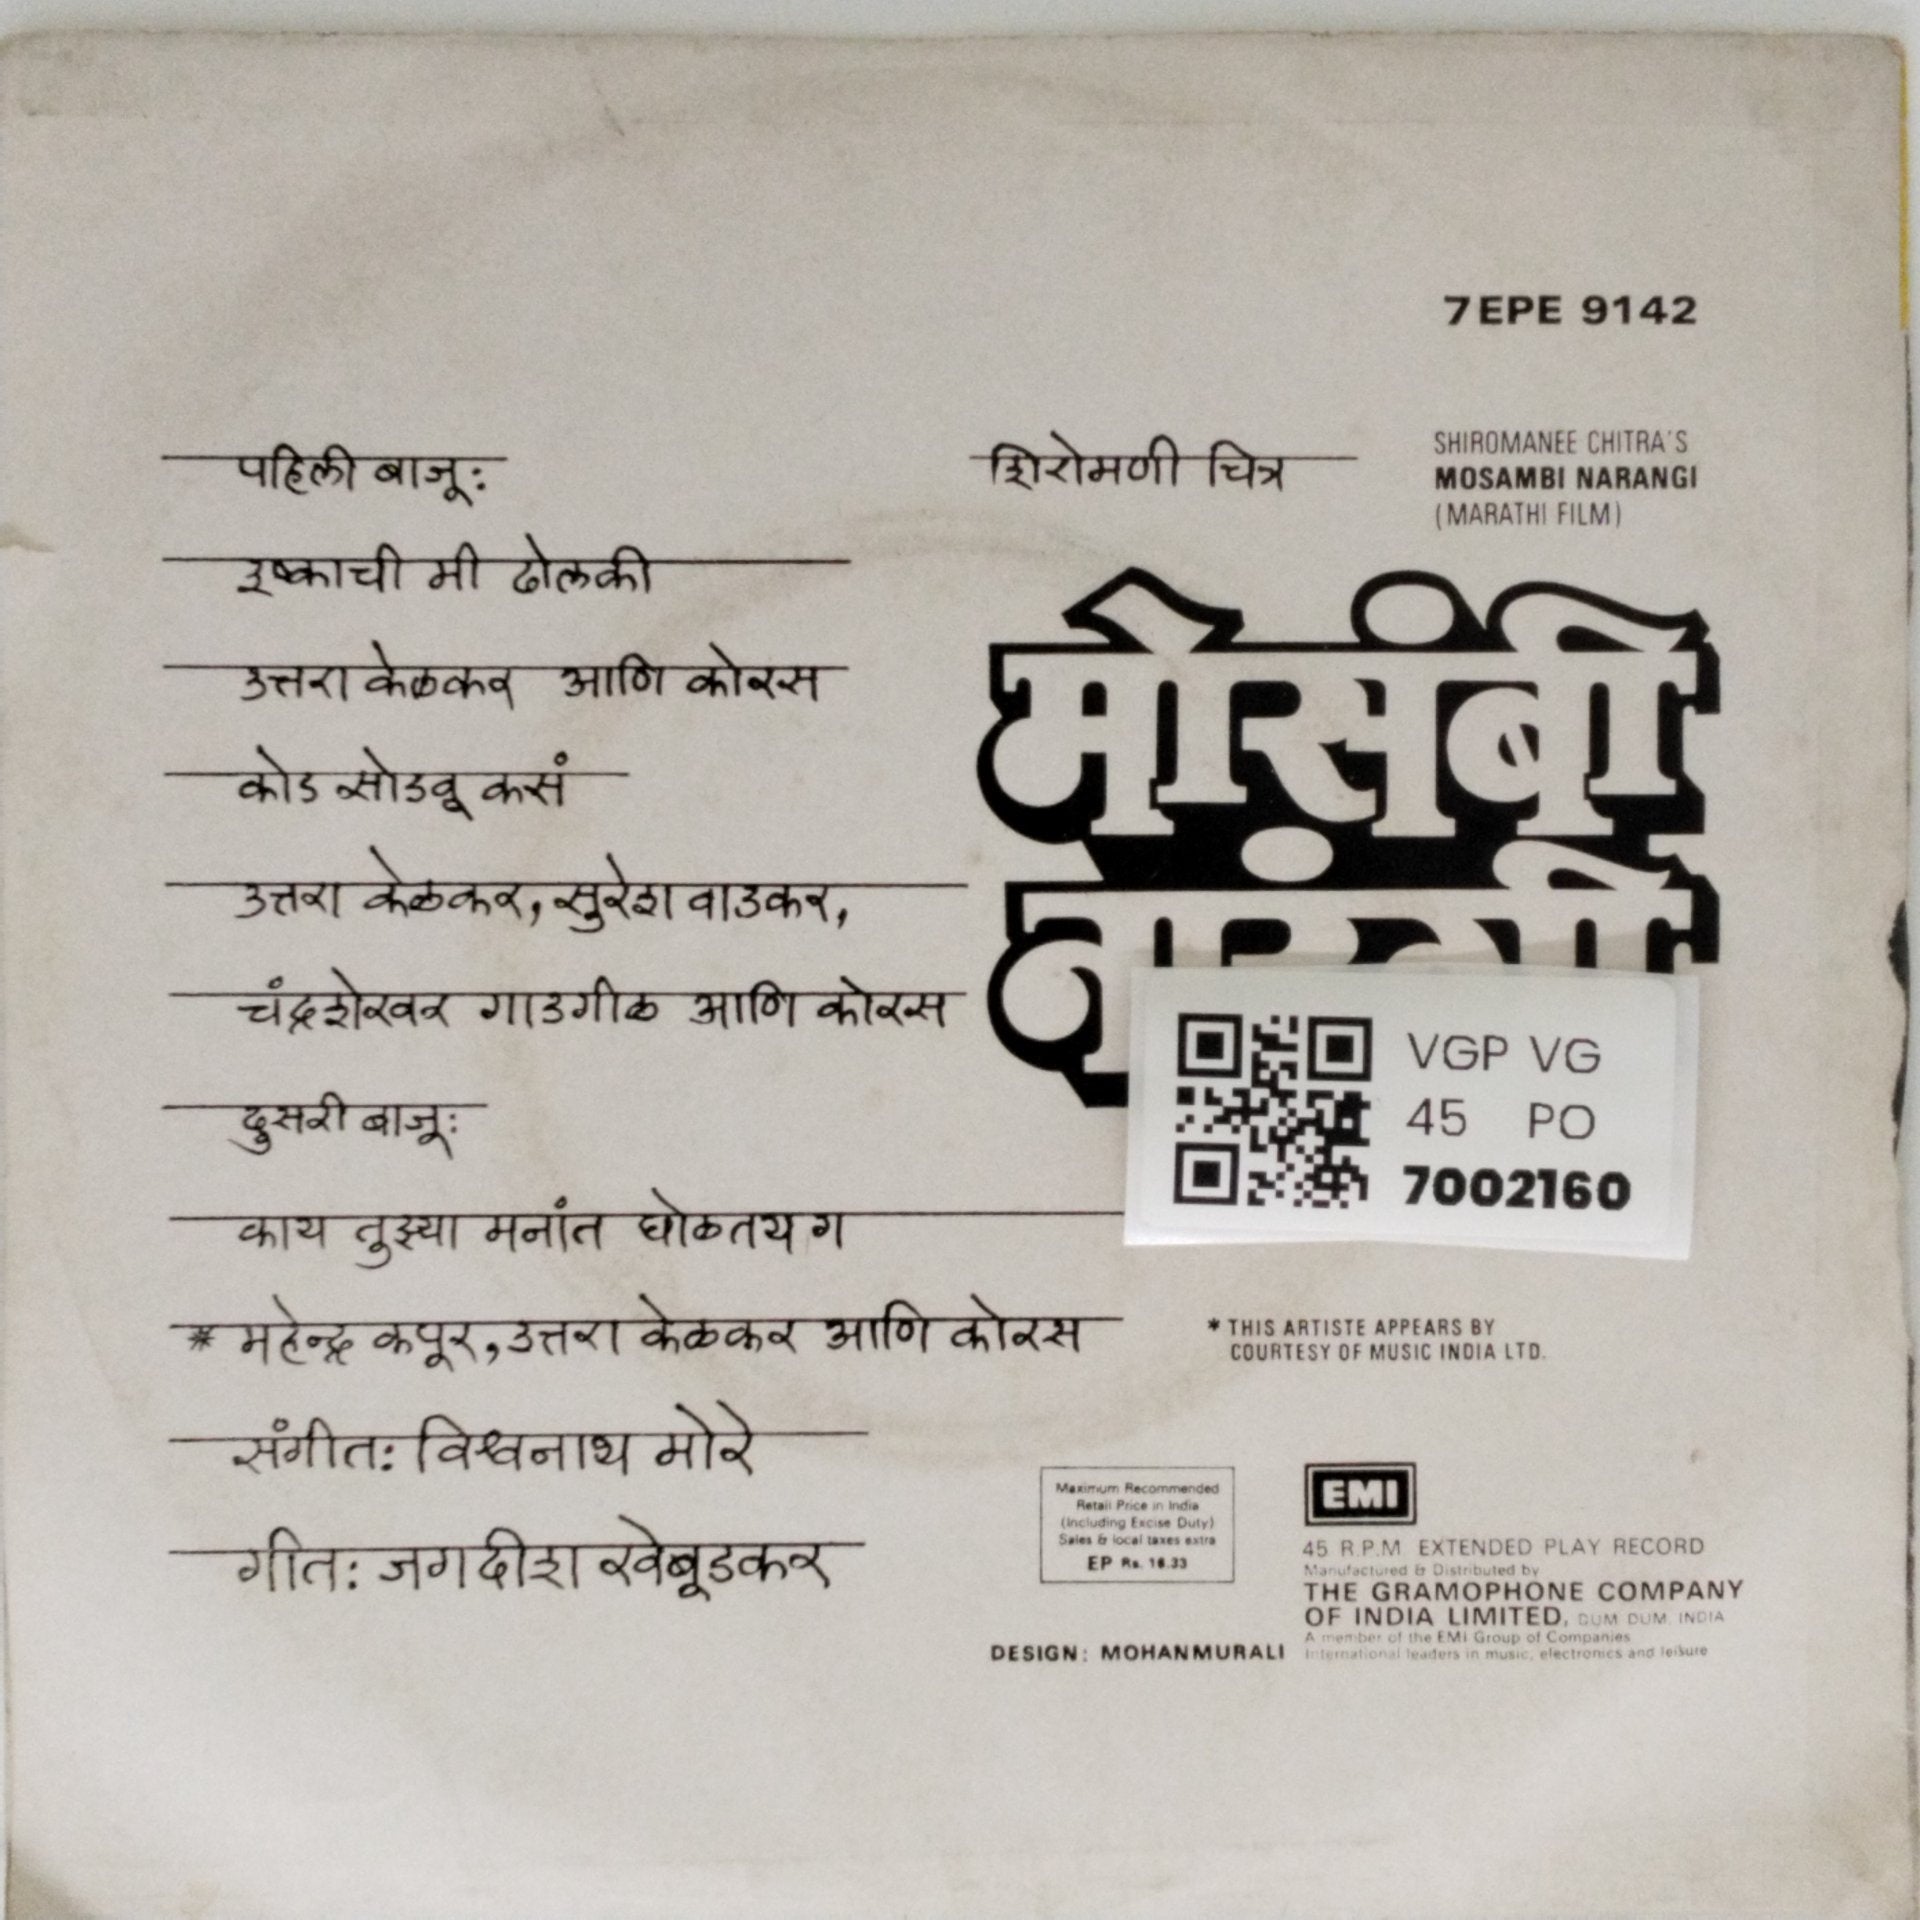 7EPE 9142
शिरोमणी चित्र
SHIROMANEE CHITRA'S
MOSAMBI NARANGI
(MARATHI FILM)
मोसंबी
पहिली बाजू:
इष्काची मी ढोलकी
उत्तरा केळकर आणि कोरस
कोड सोडवू कसं
उत्तरा केळकर, सुरेश वाडकर,
चंद्रशेखर गाडगीळ आणि कोरस
दुसरी बाजू:
काय तुझ्या मनांत घोळतय ग
* महेन्द्र कपूर, उत्तरा केळकर आणि कोरस
संगीत: विश्वनाथ मोरे
गीत: जगदीश खेबूडकर
VGP VG
45 PO
7002160
* THIS ARTISTE APPEARS BY
COURTESY OF MUSIC INDIA LTD.
Maximum Recommended
Retail Price in India
(Including Excise Duty)
Sales & local taxes extra
EP Rs. 16.33
DESIGN: MOHANMURALI
EMI
45 R.P.M EXTENDED PLAY RECORD
Manufactured & Distributed by
THE GRAMOPHONE COMPANY
OF INDIA LIMITED, DUM DUM, INDIA
A member of the EMI Group of Companies
International leaders in music, electronics and leisure